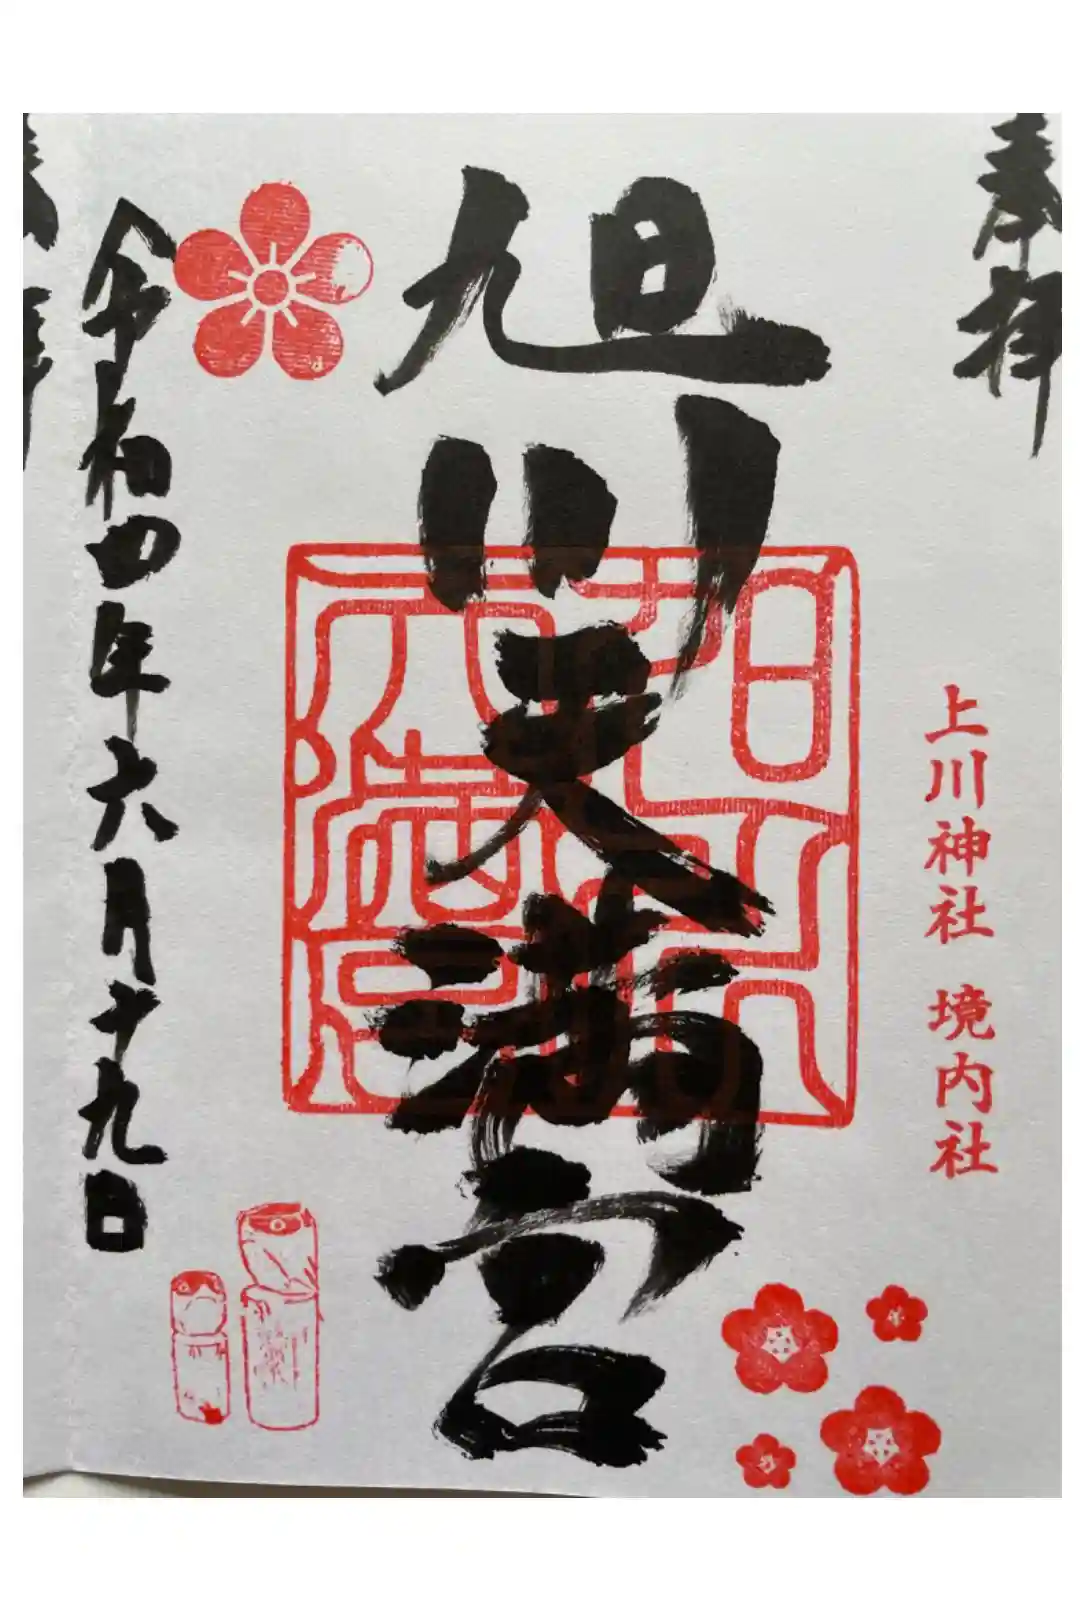 奉拝
上川神社 境内社
旭川天満宮
旭川天満宮
令和四年六月十九日